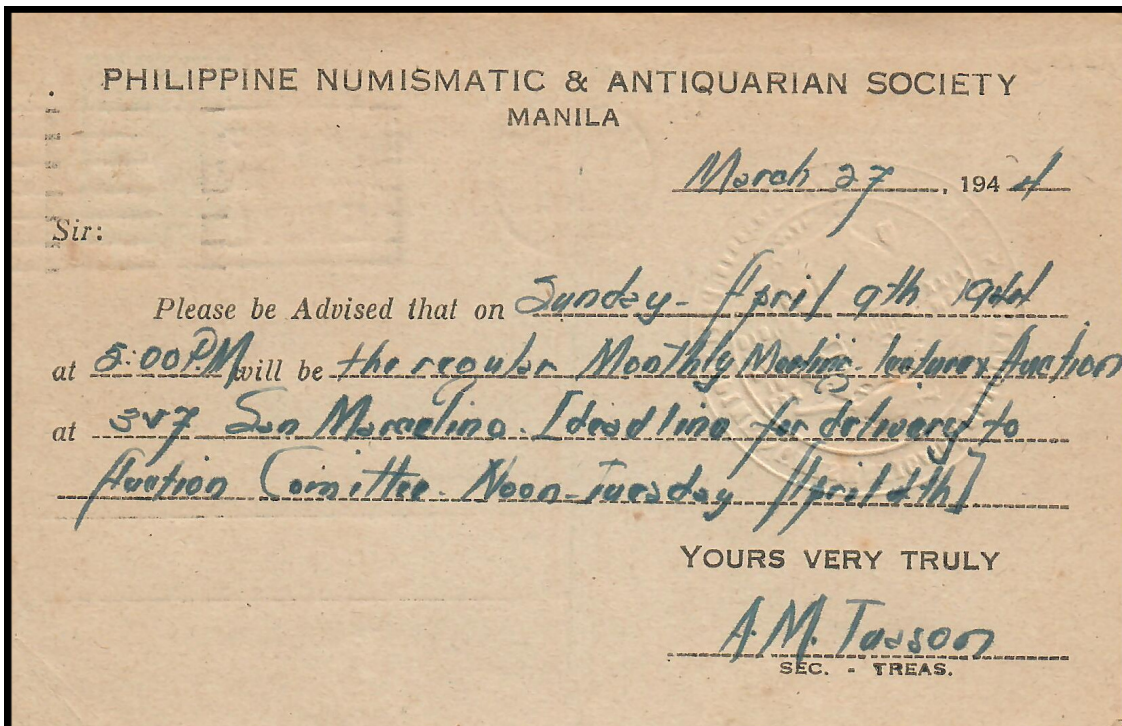 PHILIPPINE NUMISMATIC & ANTIQUARIAN SOCIETY
MANILA
March 27, 1944
Sir:
Please be Advised that on Sunday- April 9th 1944
at 5:00 PM will be the regular Monthly Meeting- lecture & Auction
at 347 San Marcelino. [deadline for delivery to
Auction Comittee- Noon-Tuesday April 4th]
YOURS VERY TRULY
A.M. Tuason
SEC. - TREAS.